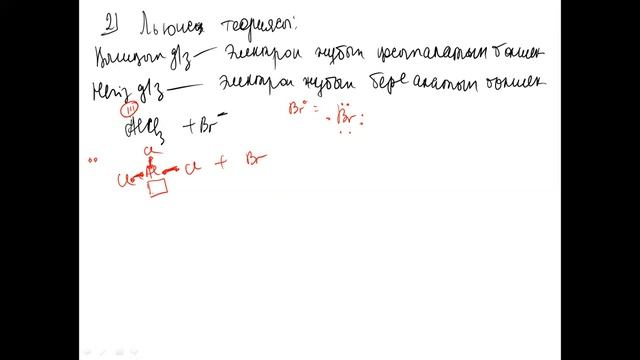 2) Льюис теориясы:
Қышқыл д/з — Электрон жұбын қосып алатын бөлшек
Негіз д/з — электрон жұбын бере алатын бөлшек
III
AlCl₃ + Br⁻
Br° = Br
Cl
Cl Al Cl + Br